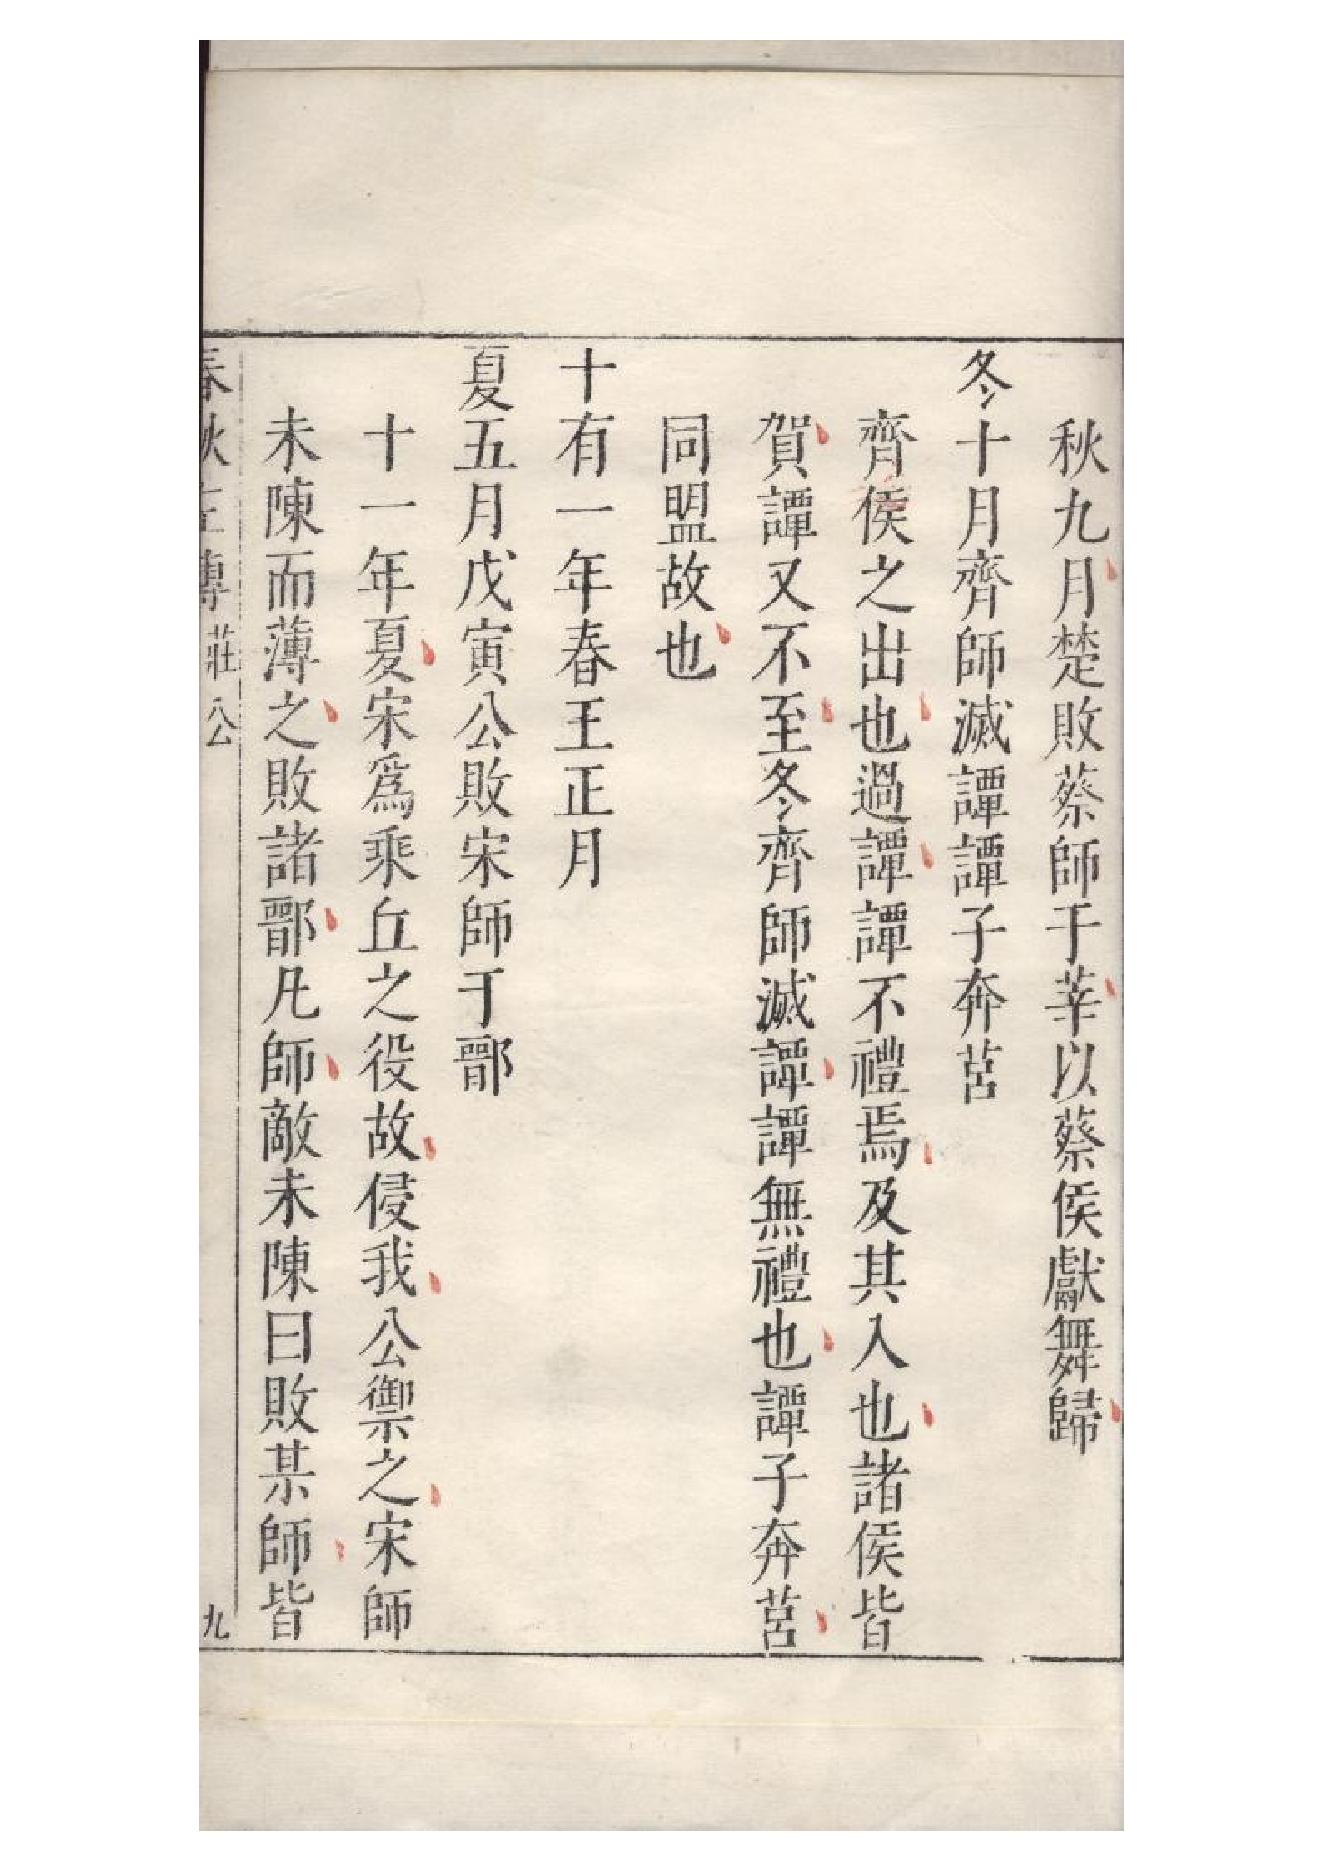 秋九月楚敗蔡師于莘以蔡侯獻舞歸
冬十月齊師滅譚譚子奔莒
齊侯之出也過譚譚不禮焉及其入也諸侯皆
賀譚又不至冬齊師滅譚譚無禮也譚子奔莒
同盟故也
十有一年春王正月
夏五月戊寅公敗宋師于鄑
十一年夏宋爲乘丘之役故侵我公禦之宋師
未陳而薄之敗諸鄑凡師敵未陳曰敗某師皆
春秋左傳 莊公 九